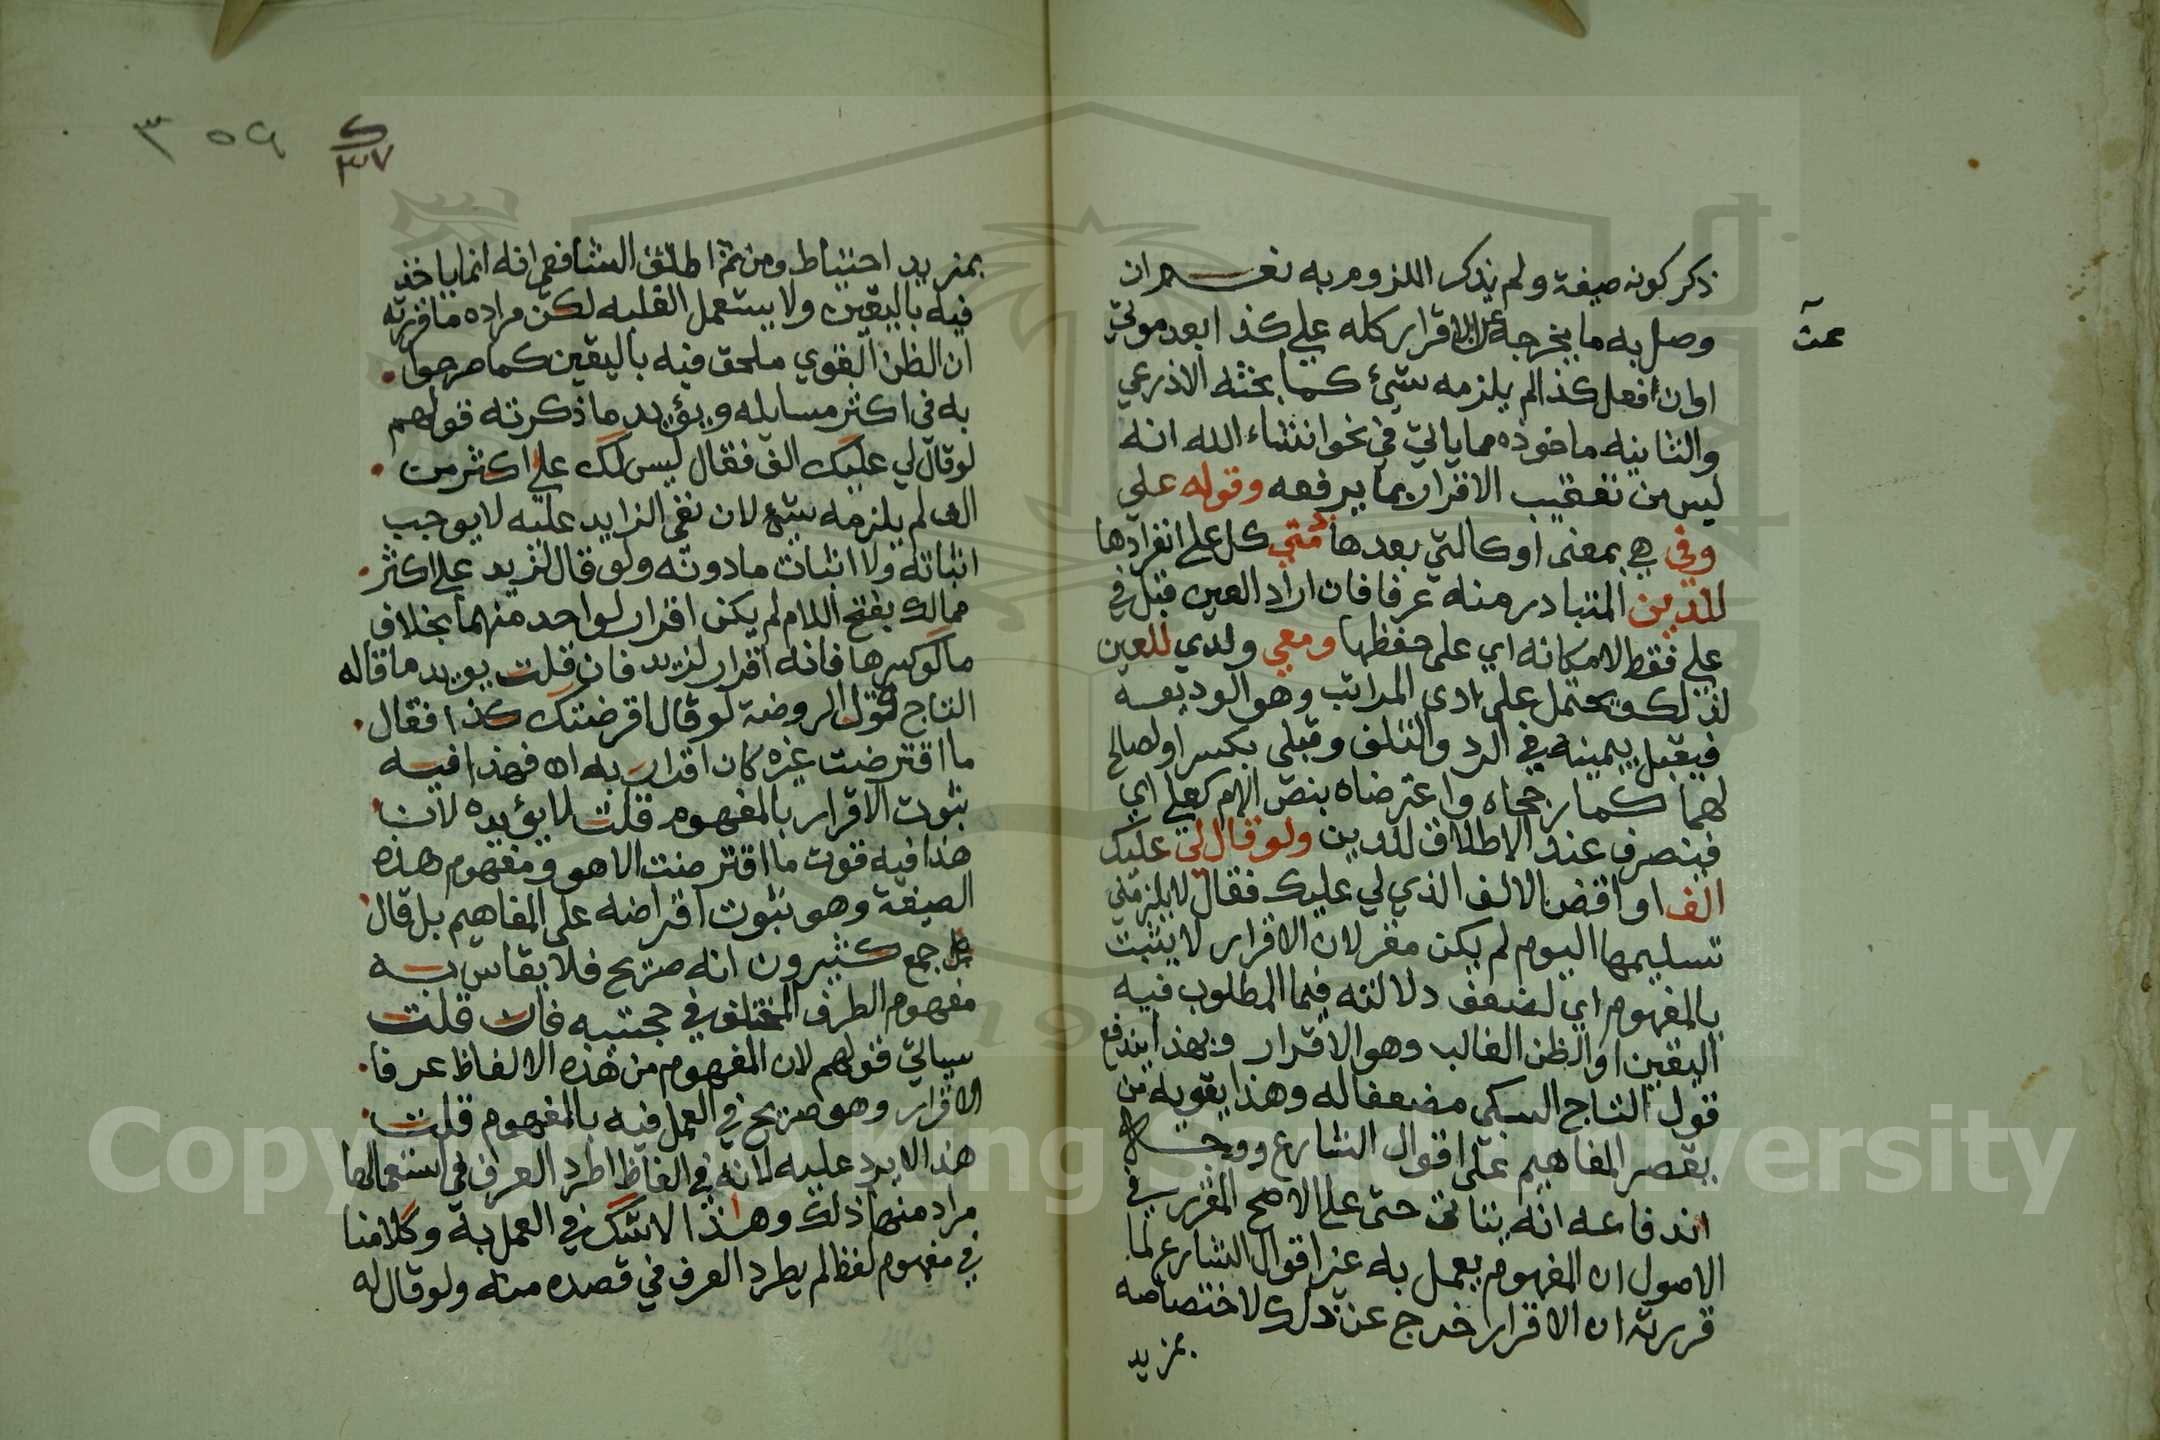 ذكر كونه صيغة ولم يذكر اللزوم به نعم ان
وصل به ما يخرجه عن الاقرار كله علي كذا بعد موتي
عث
او ان افعل كذا لم يلزمه شيئ كما بحثه الاذرعي
والثانيه ماخوذه مما ياتي في نحو انشاء الله انه
ليس من تعقيب الاقرار بما يرفعه وقوله علي
وفي هي بمعني او كالتي بعدها متي كل علي انفرادها
للدين المتبادر منه عرفا فان اراد العين قبل في
علي فقط لامكانه اي علي حفظها ومعي ولدي للعين
لذلك ويحتمل علي ادي المراتب وهو الوديعة
فيقبل بيمينه في الرد والتلف وقبلي بكسر اوله صالح
لهما كما رجحاه واعترضاه بنص الام كعلي اي
فينصرف عند الاطلاق للدين ولو قال لي عليك
الف او اقض الالف الذي لي عليك فقال لا يلزمني
تسليمها اليوم لم يكن مقر لان الاقرار لا يثبت
بالمفهوم اي لضعف دلالته فيما المطلوب فيه
اليقين او الظن الغالب وهو الاقرار وبهذا يندفع
قول التاج السبكي مضعفا له وهذا يقويه من
يقصر المفاهيم علي اقوال الشارع ووجه
اندفاعه انه يتاتي حتي علي الاصح المقرر في
الاصول ان المفهوم يعمل به غير اقوال الشارع لما
قررته ان الاقرار خرج عن ذلك لاختصاصه
بمزيد
٣٥٩
ك
٣٧
بمزيد احتياط ومن ثم اطلق الشافعي انه انما ياخذ
فيه باليقين ولا يستعمل الغلبه لكن مراده ما قررته
ان الظن القوي ملحق فيه باليقين كما صرحوا
به في اكثر مسايله ويؤيد ما ذكرته قولهم
لو قال لي عليك الف فقال ليس لك علي اكثر من
الف لم يلزمه شيئ لان نفي الزايد عليه لا يوجب
اثباته ولا اثبات ما دونه ولو قال لزيد علي اكثر
مما لك بفتح اللام لم يكن اقرار لواحد منهما بخلاف
ما لو كسرها فانه اقرار لزيد فان قلت يويد ما قاله
التاج قول الروضة لو قال اقرضتك كذا فقال
ما اقترضت غيره كان اقرار به اه فهذا فيه
ثبوت الاقرار بالمفهوم قلت لا يؤيده لان
هذا فيه قوت ما اقترضت الا هو ومفهوم هذه
الصيغة وهو ثبوت اقراضه علي المفاهيم بل قال
جمع كثيرون انه صريح فلا يقاس به
مفهوم الظرف المختلف في حجتيه فان قلت
سياتي قولهم لان المفهوم من هذه الالفاظ عرفا
الاقرار وهو صريح في العمل فيه بالمفهوم قلت
هذا لا يرد عليه لانه في الفاظ اطرد العرف في استعمالها
مراد منها ذلك وهذا لا شك في العمل به وكلامنا
في مفهوم لفظ لم يطرد العرف في قصده منه ولو قال له
Copyright © King Saud University